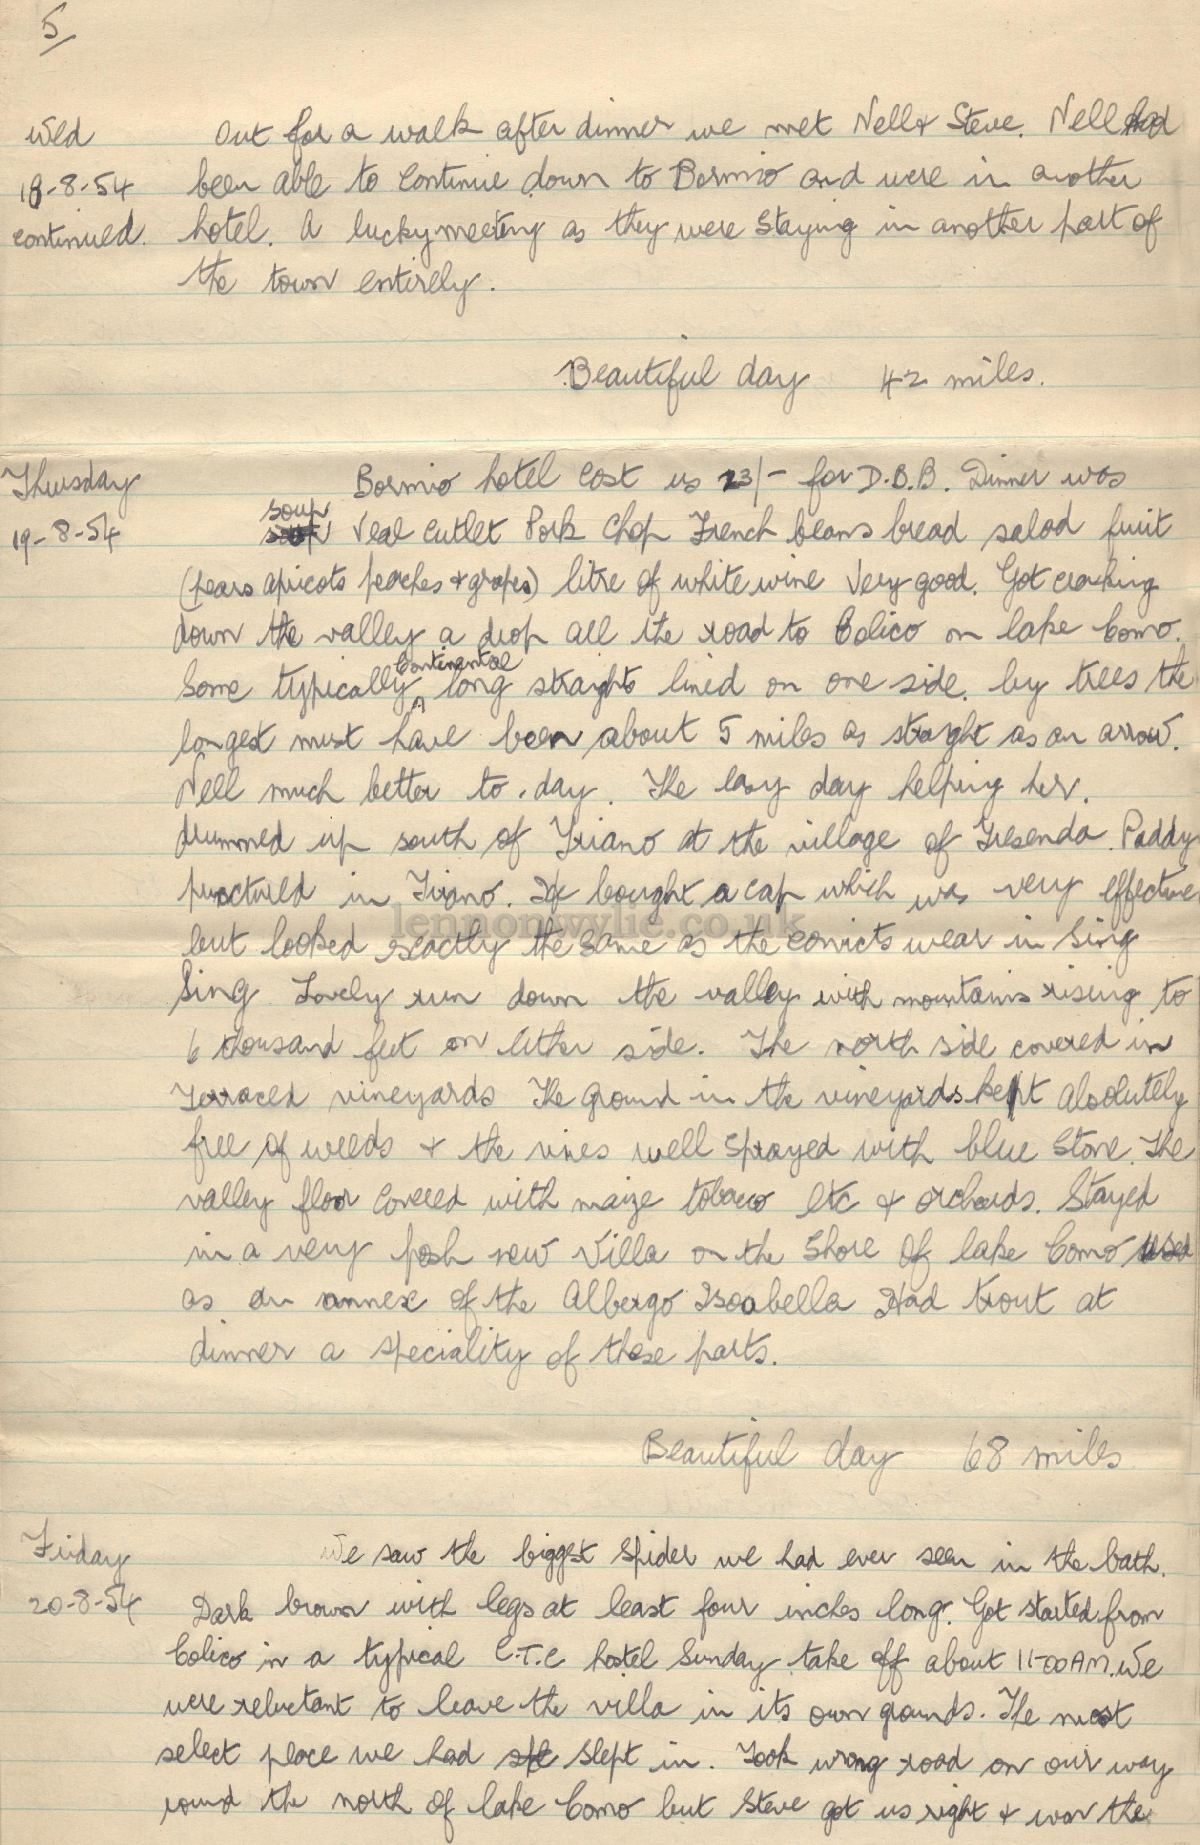 5
Wed Out for a walk after dinner we met Nell & Steve. Nell had
18-8-54 been able to continue down to Bormio and were in another
continued. hotel. A lucky meeting as they were staying in another part of
the town entirely.
Beautiful day 42 miles.
Thursday Bormio hotel cost us 23/- for D.B.B. Dinner was
soup
19-8-54 Veal Cutlet Pork Chop French beans bread salad fruit
(pears apricots peaches & grapes) litre of white wine Very good. Got cracking
down the valley a drop all the road to Colico on lake Como.
Continental
Some typically long straights lined on one side. by trees the
longest must have been about 5 miles as straight as an arrow.
Nell much better to.day. The easy day helping her.
drummed up south of Triano at the village of Tresenda. Paddy
punctured in Tirano. He bought a cap which was very effective
lennonwylie.co.uk
but looked exactly the same as the convicts wear in Sing
Sing Lovely run down the valley with mountains rising to
6 thousand feet on either side. The north side covered in
terraced vineyards The ground in the vineyards kept absolutely
free of weeds & the vines well sprayed with blue Stone. The
valley floor covered with maize tobacco etc & orchards. Stayed
in a very posh new Villa on the Shore of lake Como used
as an annexe of the Albergo Isoabella Had trout at
dinner a speciality of these parts.
Beautiful day 68 miles
Friday We saw the biggest Spider we had ever seen in the bath.
20-8-54 Dark brown with legs at least four inches long. Got started from
Colico in a typical C.T.C hostel Sunday take off about 11-00AM. We
were reluctant to leave the villa in its own grounds. The most
select place we had slept in. Took wrong road on our way
round the north of lake Como but Steve got us right & won the